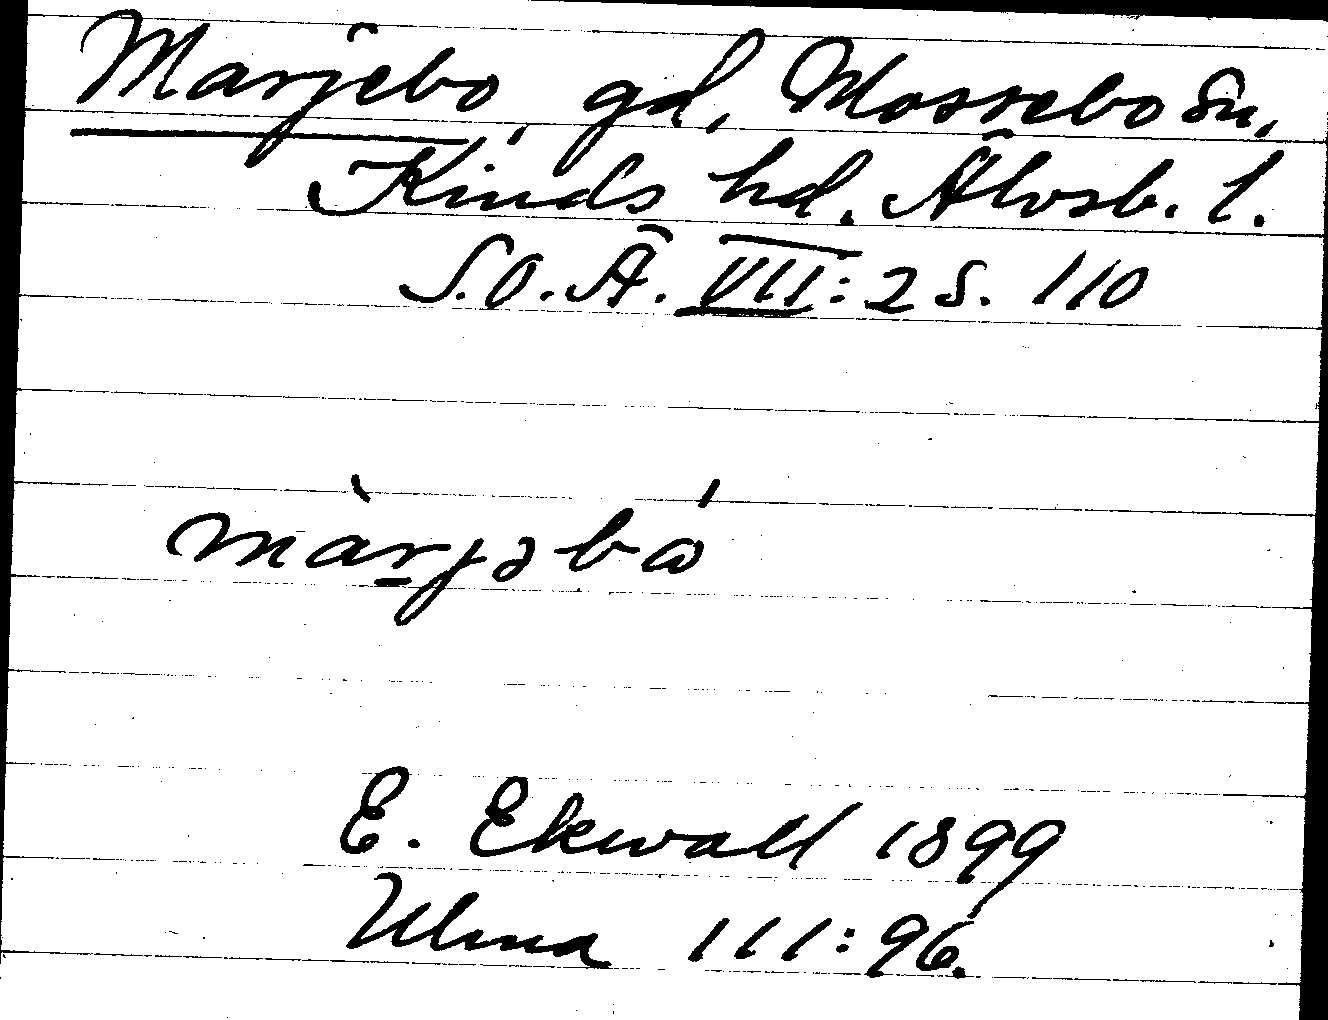 Marjebo, gd, Mossebo Sn,
Kinds hd. Älvsb. l.
S.O.Ä. VII:2 s. 110
màrjəbó
E. Ekwall 1899
Ulma 111:96.